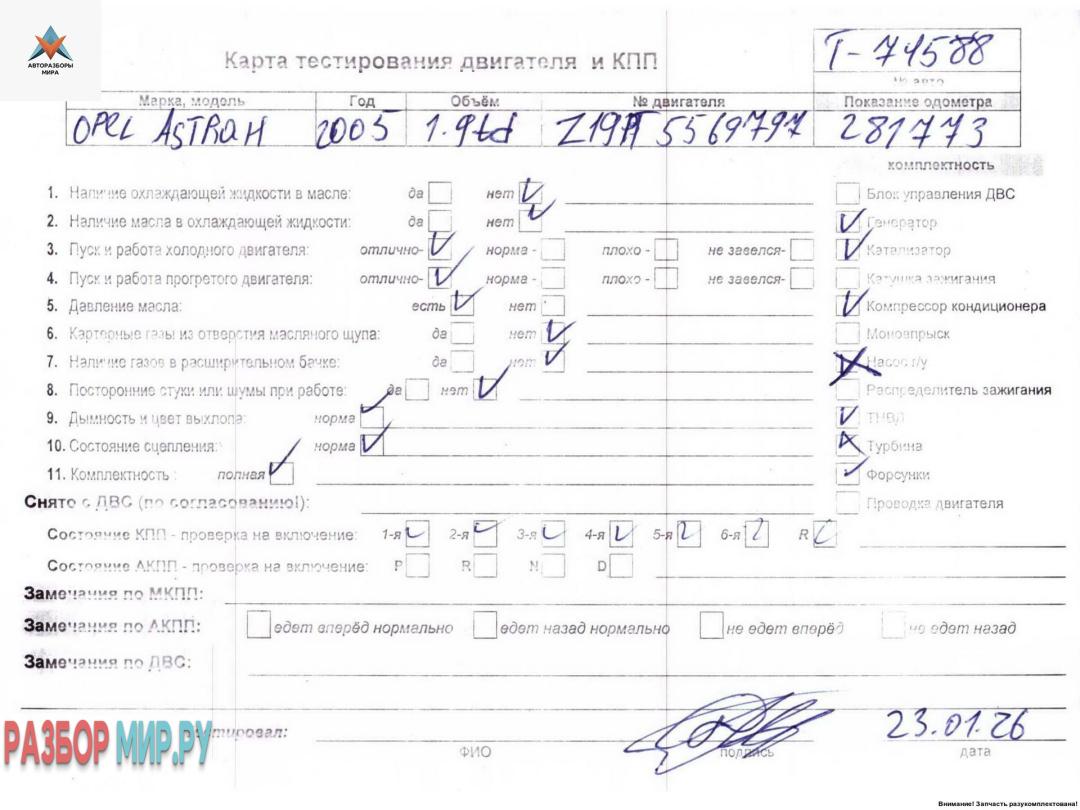 АВТОРАЗБОРЫ
МИРА
Карта тестирования двигателя и КПП
T-74588
№ авто
Марка, модель Год Объём № двигателя Показание одометра
OPEL ASTRA H 2005 1.9td Z19DT 5569797 281773
комплектность
1. Наличие охлаждающей жидкости в масле: да нет Блок управления ДВС
2. Наличие масла в охлаждающей жидкости: да нет Генератор
3. Пуск и работа холодного двигателя: отлично- норма - плохо - не завелся- Катализатор
4. Пуск и работа прогретого двигателя: отлично- норма - плохо - не завелся- Катушка зажигания
5. Давление масла: есть нет Компрессор кондиционера
6. Картерные газы из отверстия масляного щупа: да нет Моновпрыск
7. Наличие газов в расширительном бачке: да нет Насос г/у
8. Посторонние стуки или шумы при работе: да нэт Распределитель зажигания
9. Дымность и цвет выхлопа: норма ТНВД
10. Состояние сцепления: норма Турбина
11. Комплектность : полная Форсунки
Снято с ДВС (по согласованию!): Проводка двигателя
Состояние КПП - проверка на включение: 1-я 2-я 3-я 4-я 5-я 6-я R
Состояние АКПП - проверка на включение: P R N D
Замечания по МКПП:
Замечания по АКПП: едет вперёд нормально едет назад нормально не едет вперёд не едет назад
Замечания по ДВС:
23.01.26
РАЗБОР МИР.РУ
ФИО подпись дата
Внимание! Запчасть разукомплектована!